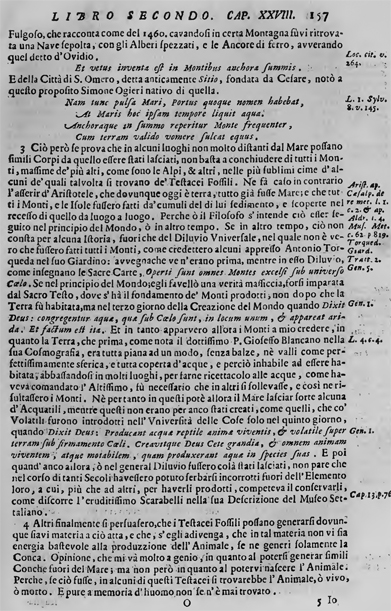 LIBRO SECONDO. CAP. XXVIII. 157
Fulgoso, che racconta come del 1460. cavandosi in certa Montagna fu vi ritrova-
ta una Nave sepolta, con gli Alberi spezzati, e le Ancore di ferro, avverando
quel detto d'Ovidio.
Loc. cit. v.
264.
Et vetus inventa est in Montibus anchora summis.
E della Città di S. Omero, detta anticamente Sitio, fondata da Cesare, notò a
questo proposito Simone Ogieri nativo di quella.
Nam tunc pulsa Mari, Portus quoque nomen habebat,
L. 1. Sylv.
At Maris hoc ipsam tempore liquit aqua.
8. v. 145.
Anchoraque in summo reperitur Monte frequenter,
Cum terram valido vomere fulcat equus.
3 Ciò però se prova che in alcuni luoghi non molto distanti dal Mare possano
simili Corpi da quello essere stati lasciati, non basta a conchiudere di tutti i Mon-
ti, massime de' più alti, come sono le Alpi, & altri, nelle più sublimi cime d'al-
cuni de' quali talvolta si trovano de' Testacei Fossili. Nè fà caso in contrario
l'asserir d'Aristotele, che dovunque oggi è terra, tutto già fusse Mare; e che tut-
ti i Monti, e le Isole fussero fatti da' cumuli del di lui sedimento, e scoperte nel
recesso di quello da luogo a luogo. Perche ò il Filosofo s'intende ciò esser se-
guito nel principio del Mondo, ò in altro tempo. Se in altro tempo, ciò non
consta per alcuna Istoria, fuorichè del Diluvio Vniversale, nel quale non è ve-
ro che fussero fatti tutti i Monti, come credettero alcuni appresso Antonio Tor-
queda nel suo Giardino: avvegnache ve n'erano prima, mentre in esso Diluvio,
come insegnano le Sacre Carte, Operti sunt omnes Montes excelsi sub universo
Cælo. Se nel principio del Mondo; egli favellò una verità massiccia, forsi imparata
dal Sacro Testo, dove s'hà il fondamento de' Monti prodotti, non dopo che la
Terra fù habitata, ma nel terzo giorno della Creazione del Mondo quando Dixit
Deus: congregentur aquæ, quæ sub Cælo sunt, in locum unum, & appareat ari-
da. Et factum est ita. Et in tanto apparvero allora i Monti a mio credere, in
quanto la Terra, che prima, come nota il dottissimo P. Gioseffo Blancano nella
sua Cosmografia, era tutta piana ad un modo, senza balze, nè valli come per-
fettissimamente sferica, e tutta coperta d'acque, e perciò inhabile ad essere ha-
bitata, abbassandosi in molti luoghi, per farne ricettacolo alle acque, come ha-
veva comandato l'Altissimo, fù necessario che in altri si sollevasse, e così ne ri-
sultassero i Monti. Nè pertanto in questi potè allora il Mare lasciar sorte alcuna
d'Acquatili, mentre questi non erano per anco stati creati, come quelli, che co'
Volatili furono introdotti nell'Vniversità delle Cose solo nel quinto giorno,
quando Dixit Deus: Producant aquæ reptile animæ viventis, & volatile super
terram sub firmamento Cæli. Creavitque Deus Cete grandia, & omnem animam
viventem, atque motabilem, quam produxerant aquæ in species suas. E poi
quand'anco allora, ò nel general Diluvio fussero colà stati lasciati, non pare che
nel corso di tanti Secoli havessero potuto serbarsi incorrotti fuori dell'Elemento
loro, a cui, più che ad altri, per haverli prodotti, competeva il conservarli,
come discorre l'eruditissimo Scarabelli nella sua Descrizione del Museo Set-
taliano.
4 Altri finalmente si persuasero, che i Testacei Fossili possano generarsi dovun-
que siavi materia a ciò atta, e che, s'egli adivenga, che in tal materia non vi sia
energia bastevole alla produzione dell'Animale, se ne generi solamente la
Conca. Opinione, che mi và molto a genio, in quanto al potersi generar simili
Conche fuori del Mare; ma non però in quanto al potervi nascere l'Animale.
Perche, se ciò fusse, in alcuni di questi Testacei si trovarebbe l'Animale, ò vivo,
ò morto. E pure a memoria d'huomo non se n'è mai trovato.
O 5 Io
Arist. ap.
Cæsalp. de
re met. l. 1.
c. 2. & ap.
Aldr. l. 4.
Mus. Met.
c. 62. p 819.
Torqued.
Giard.
Trat. 2.
Gen. 5.
Gen. 1.
L. 4. c. 4.
Gen. 1.
Cap. 13. p. 76